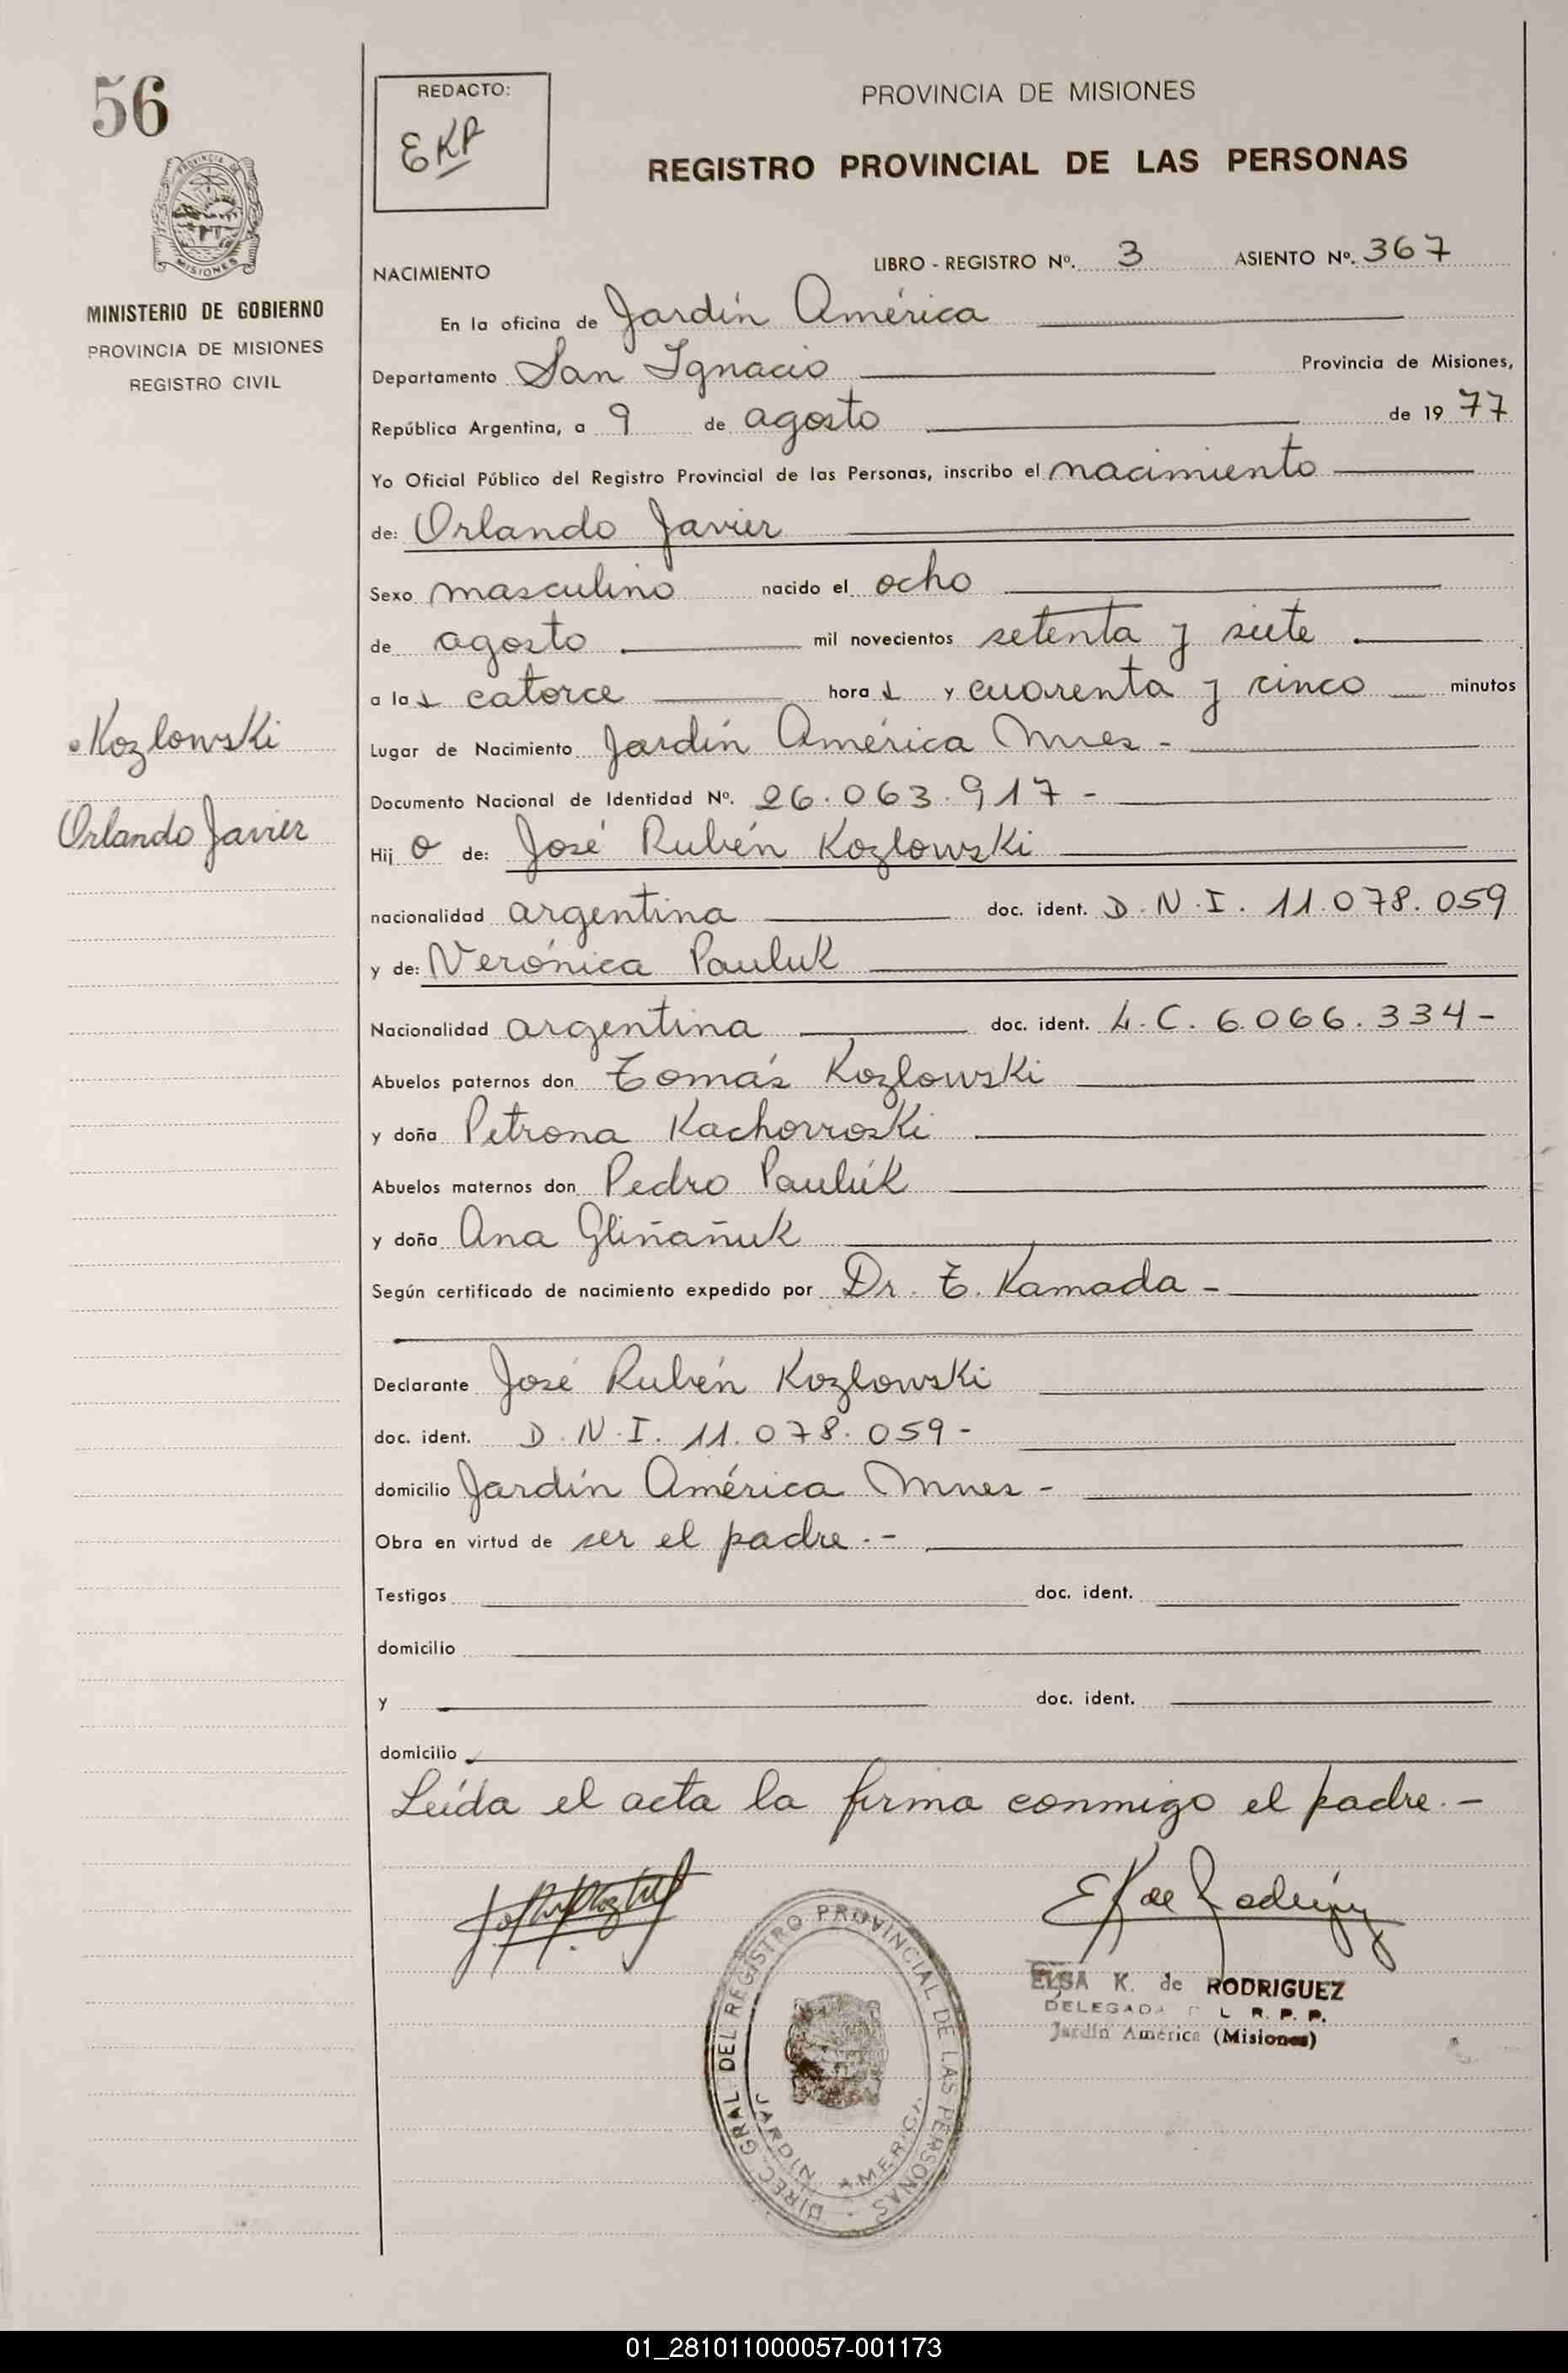 56
PROVINCIA DE
MISIONES
MINISTERIO DE GOBIERNO
PROVINCIA DE MISIONES
REGISTRO CIVIL
Kozlowski
Orlando Javier
REDACTO:
EKR
PROVINCIA DE MISIONES
REGISTRO PROVINCIAL DE LAS PERSONAS
NACIMIENTO LIBRO - REGISTRO Nº. 3 ASIENTO Nº. 367
En la oficina de Jardín América
Departamento San Ignacio Provincia de Misiones,
República Argentina, a 9 de agosto de 19 77
Yo Oficial Público del Registro Provincial de las Personas, inscribo el nacimiento
de: Orlando Javier
Sexo masculino nacido el ocho
de agosto mil novecientos setenta y siete
a la s catorce hora s y cuarenta y cinco minutos
Lugar de Nacimiento Jardín América Mnes -
Documento Nacional de Identidad Nº. 26.063.917 -
Hij o de: José Rubén Kozlowski
nacionalidad argentina doc. ident. D.N.I. 11.078.059
y de: Verónica Pauluk
Nacionalidad argentina doc. ident. L.C. 6.066.334 -
Abuelos paternos don Tomás Kozlowski
y doña Petrona Kachorroski
Abuelos maternos don Pedro Paulúk
y doña Ana Gliñañuk
Según certificado de nacimiento expedido por Dr. T. Kamada -
Declarante José Rubén Kozlowski
doc. ident. D.N.I. 11.078.059 -
domicilio Jardín América Mnes -
Obra en virtud de ser el padre.-
Testigos doc. ident.
domicilio
y doc. ident.
domicilio
Leída el acta la firma conmigo el padre.-
E K de Rodríguez
ELSA K. de RODRIGUEZ
DELEGADA L R. P. P.
Jardín América (Misiones)
DIREC GRAL DEL REGISTRO PROVINCIAL DE LAS PERSONAS
JARDIN AMERICA
01_281011000057-001173